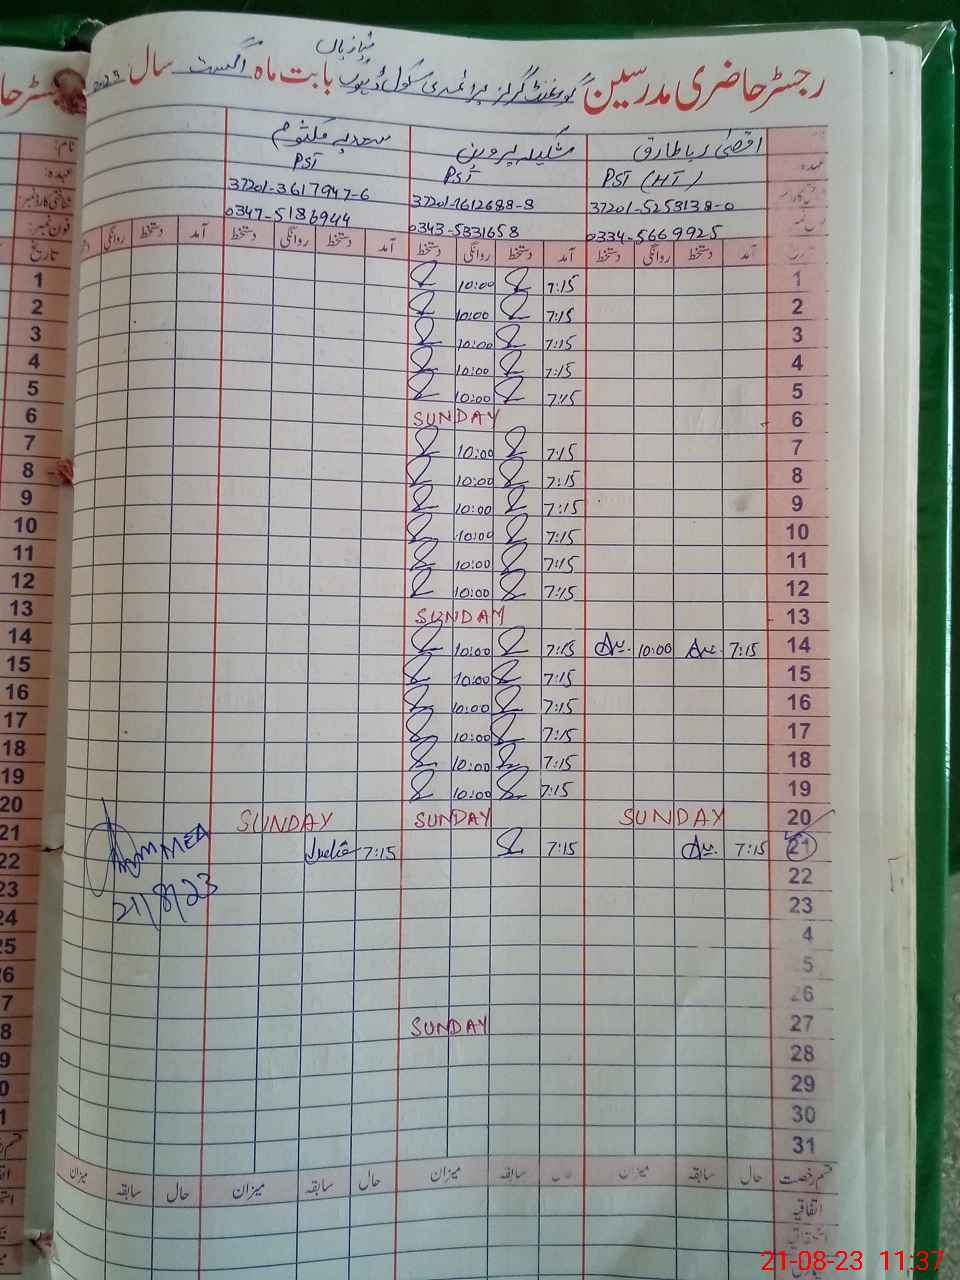 رجسٹر حاضری مدرسین گورنمنٹ گرلز پرائمری سکول ڈھوک میازیاں بابت ماہ اگست سال 2023
اقصیٰ رباطارق شکیلہ پروین سعدیہ کلثوم نام:
عہدہ PST (HT) PST PST عہدہ:
37201-5253138-0 37201-1612688-8 37201-3617947-6 شناختی کارڈ نمبر:
0334-5669925 0343-5331658 0347-5186944 فون نمبر:
آمد دستخط روانگی دستخط آمد دستخط روانگی دستخط آمد دستخط روانگی دستخط آمد دستخط روانگی تاریخ
1 7:15 10:00 1
2 7:15 10:00 2
3 7:15 10:00 3
4 7:15 10:00 4
5 7:15 10:00 5
6 SUNDAY 6
7 7:15 10:00 7
8 7:15 10:00 8
9 7:15 10:00 9
10 7:15 10:00 10
11 7:15 10:00 11
12 7:15 10:00 12
13 SUNDAY 13
14 7:15 10:00 7:15 10:00 14
15 7:15 10:00 15
16 7:15 10:00 16
17 7:15 10:00 17
18 7:15 10:00 18
19 7:15 10:00 19
20 SUNDAY SUNDAY SUNDAY 20
21 7:15 7:15 7:15 21
MEA
22 22
21/8/23
23 23
4 24
5 25
26 26
27 SUNDAY 7
28 8
29 9
30 0
31 1
قسم رخصت حال سابقہ میزان حال سابقہ میزان حال سابقہ میزان حال سابقہ میزان
اتفاقیہ
21-08-23 11:37